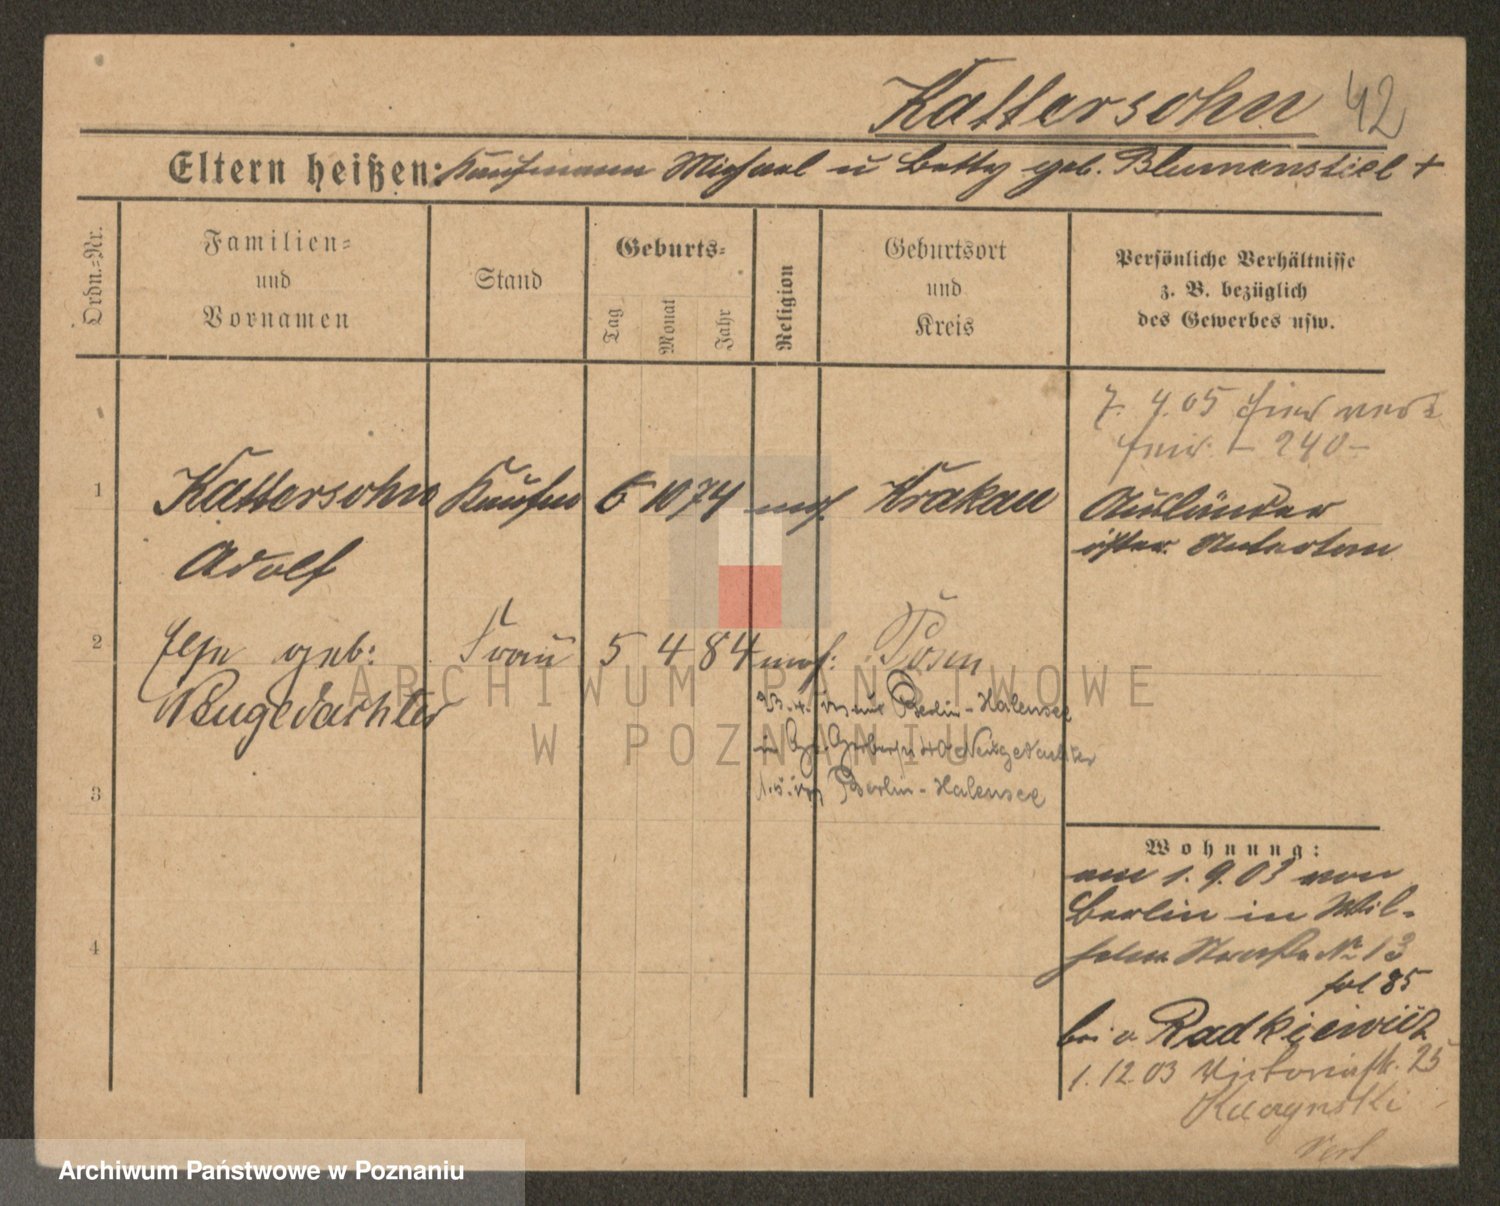 Kattersohn 42
Eltern heißen: Kaufmann Michael u Betty geb. Blumenstiel +
Ordn.=Nr.
Familien=
und
Vornamen
Stand
Geburts=
Tag
Monat
Jahr
Religion
Geburtsort
und
Kreis
Persönliche Verhältnisse
z. B. bezüglich
des Gewerbes usw.
7. 4. 05
240
1 Kattersohn Kaufm 6 10 74 mos. Krakau
Adolf
Ausländer
öster. Untertan
2 Else geb: Frau 5 4 84 mos: Posen
Neugedachter
23. 4. Berlin-Halensee
Neugedachter
3 1. 5. Berlin-Halensee
4
Wohnung:
am 1. 9. 03 von
Berlin in Wil-
helm Straße No 13
fol 85
bei v Radkiewicz
1. 12. 03 Victoriastr. 25
ARCHIWUM PAŃSTWOWE
W POZNANIU
Archiwum Państwowe w Poznaniu